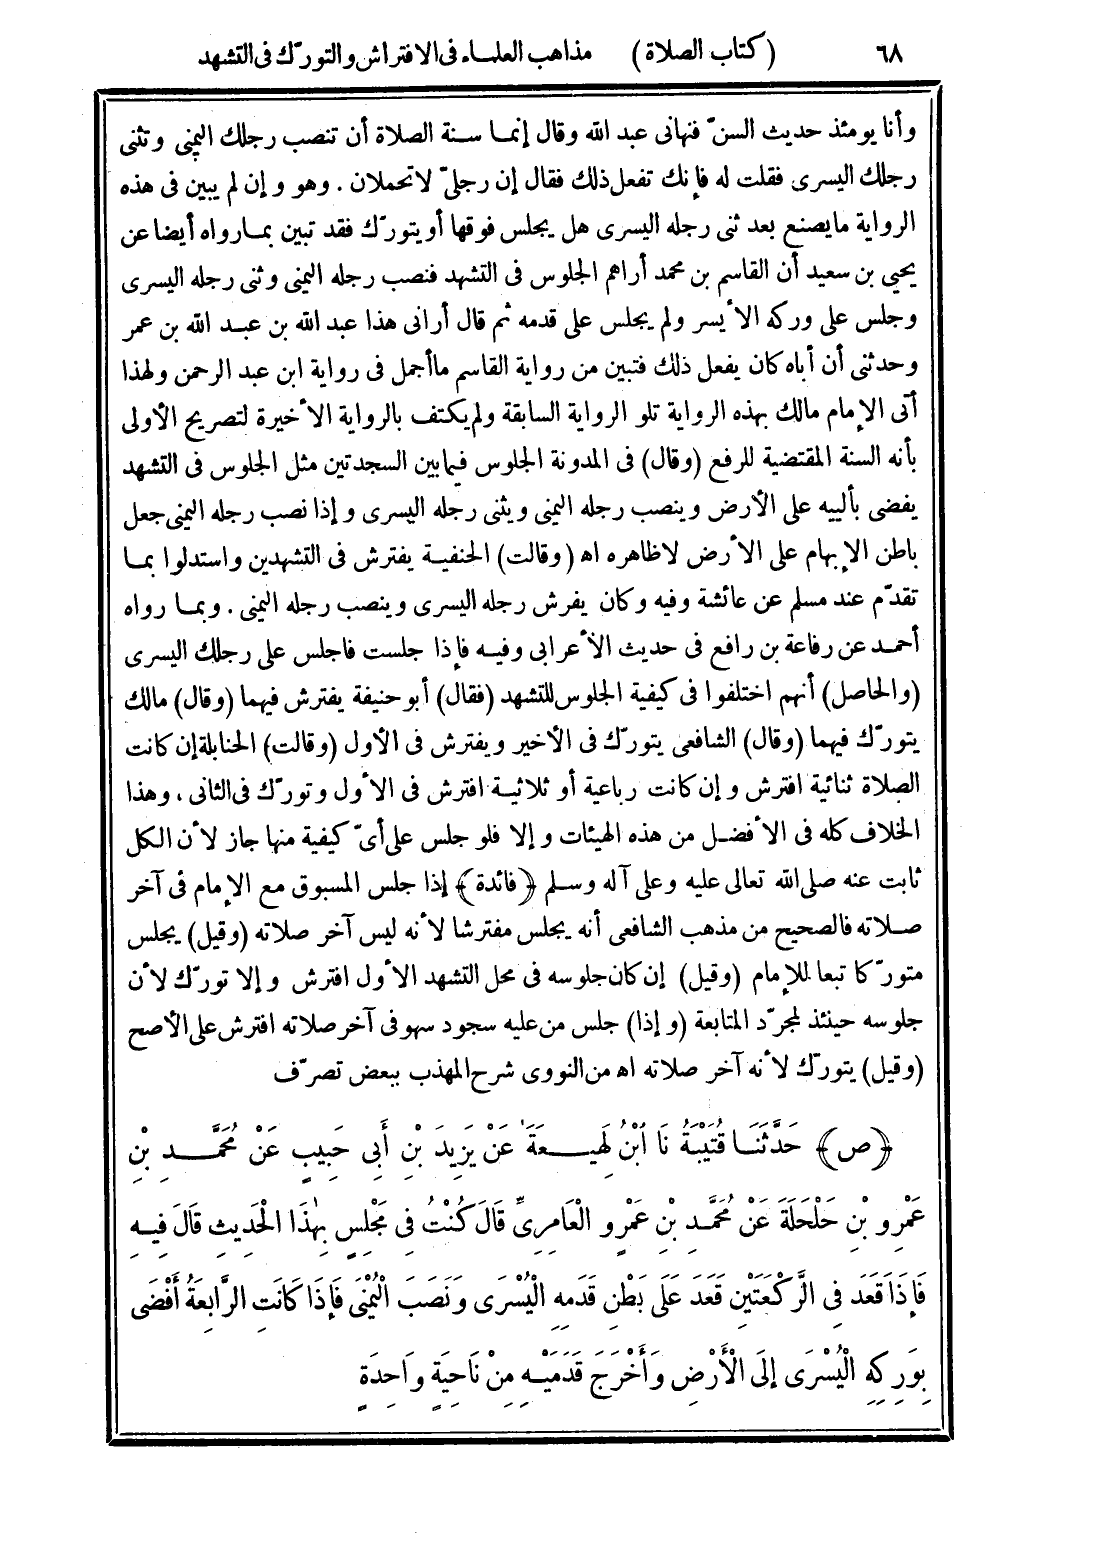 ٦٨ (كتاب الصلاة) مذاهب العلماء فى الافتراش والتورّك فى التشهد
وأنا يومئذ حديث السنّ فنهانى عبد الله وقال إنما سنة الصلاة أن تنصب رجلك اليمنى وتثنى
رجلك اليسرى فقلت له فإنك تفعل ذلك فقال إن رجلىّ لا تحملان . وهو وإن لم يبين فى هذه
الرواية ما يصنع بعد ثنى رجله اليسرى هل يجلس فوقها أو يتورّك فقد تبين بما رواه أيضا عن
يحيى بن سعيد أن القاسم بن محمد أراهم الجلوس فى التشهد فنصب رجله اليمنى وثنى رجله اليسرى
وجلس على وركه الأيسر ولم يجلس على قدمه ثم قال أرانى هذا عبد الله بن عبد الله بن عمر
وحدثنى أن أباه كان يفعل ذلك فتبين من رواية القاسم ما أجمل فى رواية ابن عبد الرحمن ولهذا
أتى الإمام مالك بهذه الرواية تلو الرواية السابقة ولم يكتف بالرواية الأخيرة لتصريح الأولى
بأنه السنة المقتضية للرفع (وقال) فى المدونة الجلوس فيما بين السجدتين مثل الجلوس فى التشهد
يفضى بأليه على الأرض وينصب رجله اليمنى ويثنى رجله اليسرى وإذا نصب رجله اليمنى جعل
باطن الإبهام على الأرض لا ظاهره اه (وقالت) الحنفية يفترش فى التشهدين واستدلوا بما
تقدّم عند مسلم عن عائشة وفيه وكان يفرش رجله اليسرى وينصب رجله اليمنى . وبما رواه
أحمد عن رفاعة بن رافع فى حديث الأعرابى وفيه فإذا جلست فاجلس على رجلك اليسرى
(والحاصل) أنهم اختلفوا فى كيفية الجلوس للتشهد (فقال) أبو حنيفة يفترش فيهما (وقال) مالك
يتورّك فيهما (وقال) الشافعى يتورّك فى الأخير ويفترش فى الأول (وقالت) الحنابلة إن كانت
الصلاة ثنائية افترش وإن كانت رباعية أو ثلاثية افترش فى الأول وتورّك فى الثانى ، وهذا
الخلاف كله فى الأفضل من هذه الهيئات وإلا فلو جلس على أىّ كيفية منها جاز لأن الكل
ثابت عنه صلى الله تعالى عليه وعلى آله وسلم ﴿فائدة﴾ إذا جلس المسبوق مع الإمام فى آخر
صلاته فالصحيح من مذهب الشافعى أنه يجلس مفترشا لأنه ليس آخر صلاته (وقيل) يجلس
متورّكا تبعا للإمام (وقيل) إن كان جلوسه فى محل التشهد الأول افترش وإلا تورّك لأن
جلوسه حينئذ لمجرّد المتابعة (وإذا) جلس من عليه سجود سهو فى آخر صلاته افترش على الأصح
(وقيل) يتورّك لأنه آخر صلاته اه من النووى شرح المهذب ببعض تصرّف
﴿ص﴾ حَدَّثَنَا قُتَيْبَةُ نَا ابْنُ لَهِيعَةَ عَنْ يَزِيدَ بْنِ أَبِى حَبِيبٍ عَنْ مُحَمَّدِ بْنِ
عَمْرِو بْنِ حَلْحَلَةَ عَنْ مُحَمَّدِ بْنِ عَمْرٍو الْعَامِرِىِّ قَالَ كُنْتُ فِى مَجْلِسٍ بِهٰذَا الْحَدِيثِ قَالَ فِيهِ
فَإِذَا قَعَدَ فِى الرَّكْعَتَيْنِ قَعَدَ عَلَى بَطْنِ قَدَمِهِ الْيُسْرَى وَنَصَبَ الْيُمْنَى فَإِذَا كَانَتِ الرَّابِعَةُ أَفْضَى
بِوَرِكِهِ الْيُسْرَى إِلَى الْأَرْضِ وَأَخْرَجَ قَدَمَيْهِ مِنْ نَاحِيَةٍ وَاحِدَةٍ